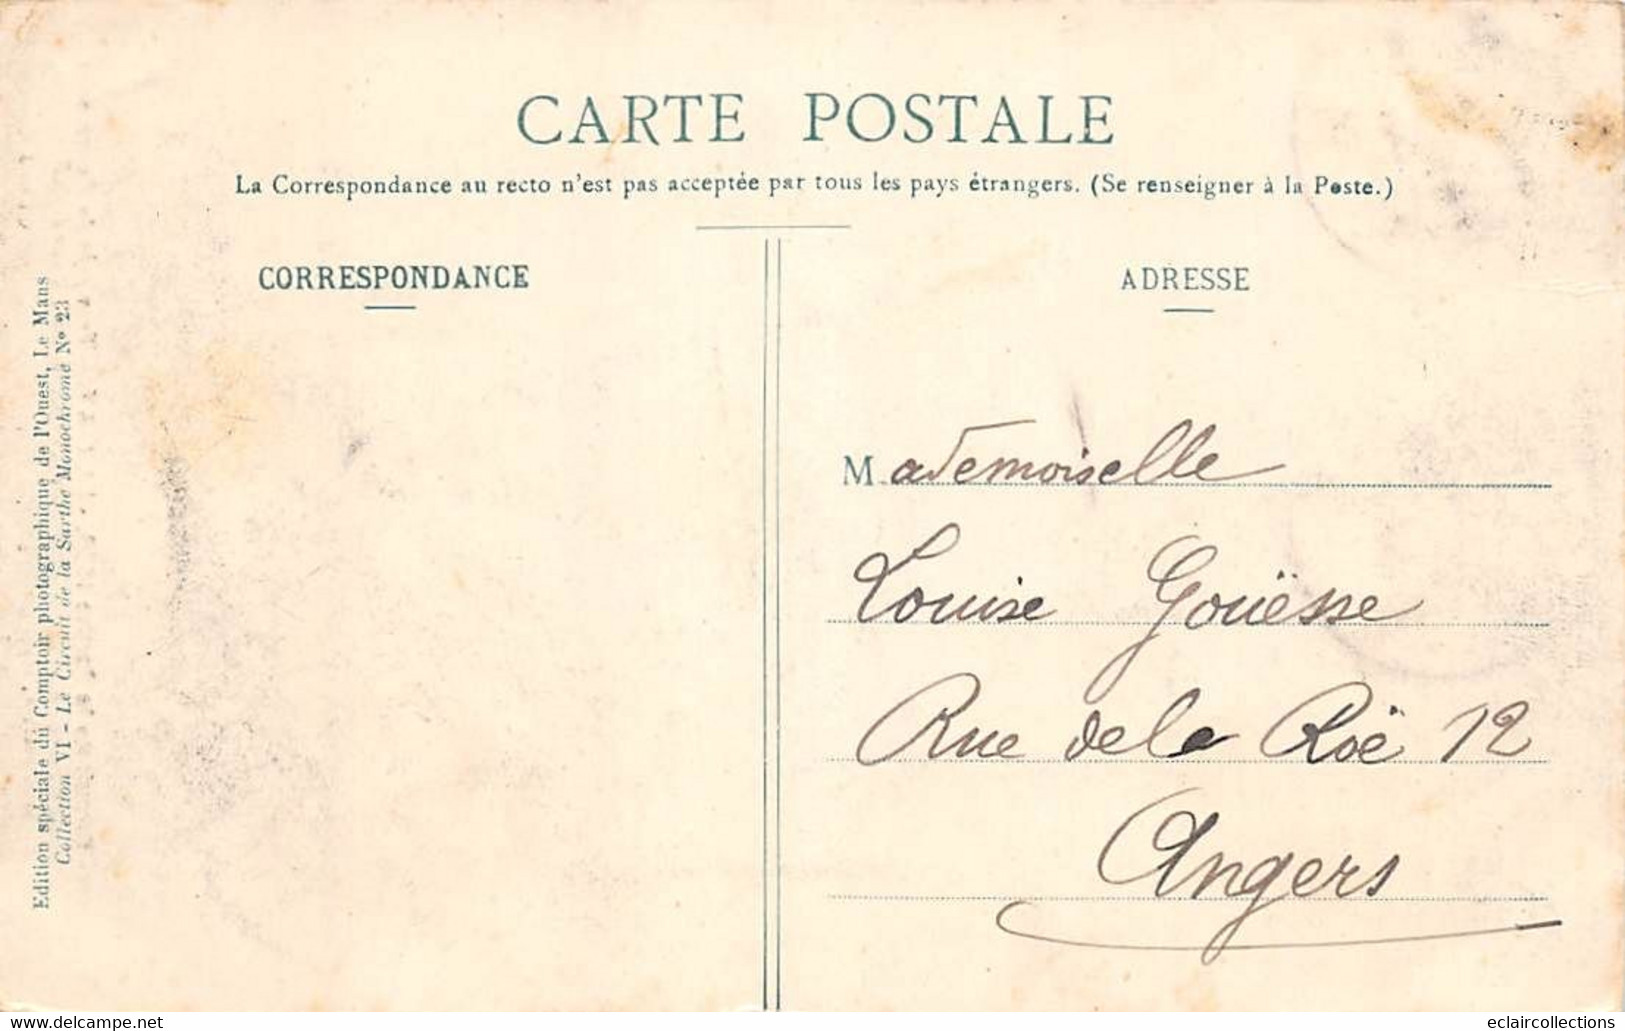 CARTE POSTALE
La Correspondance au recto n'est pas acceptée par tous les pays étrangers. (Se renseigner à la Poste.)
CORRESPONDANCE
ADRESSE
Mademoiselle
Louise Gouësse
Rue de la Roë 12
Angers
Edition spéciale du Comptoir photographique de l'Ouest, Le Mans
Collection VI - Le Circuit de la Sarthe Monochrome N° 23
www.delcampe.net
eclaircollections